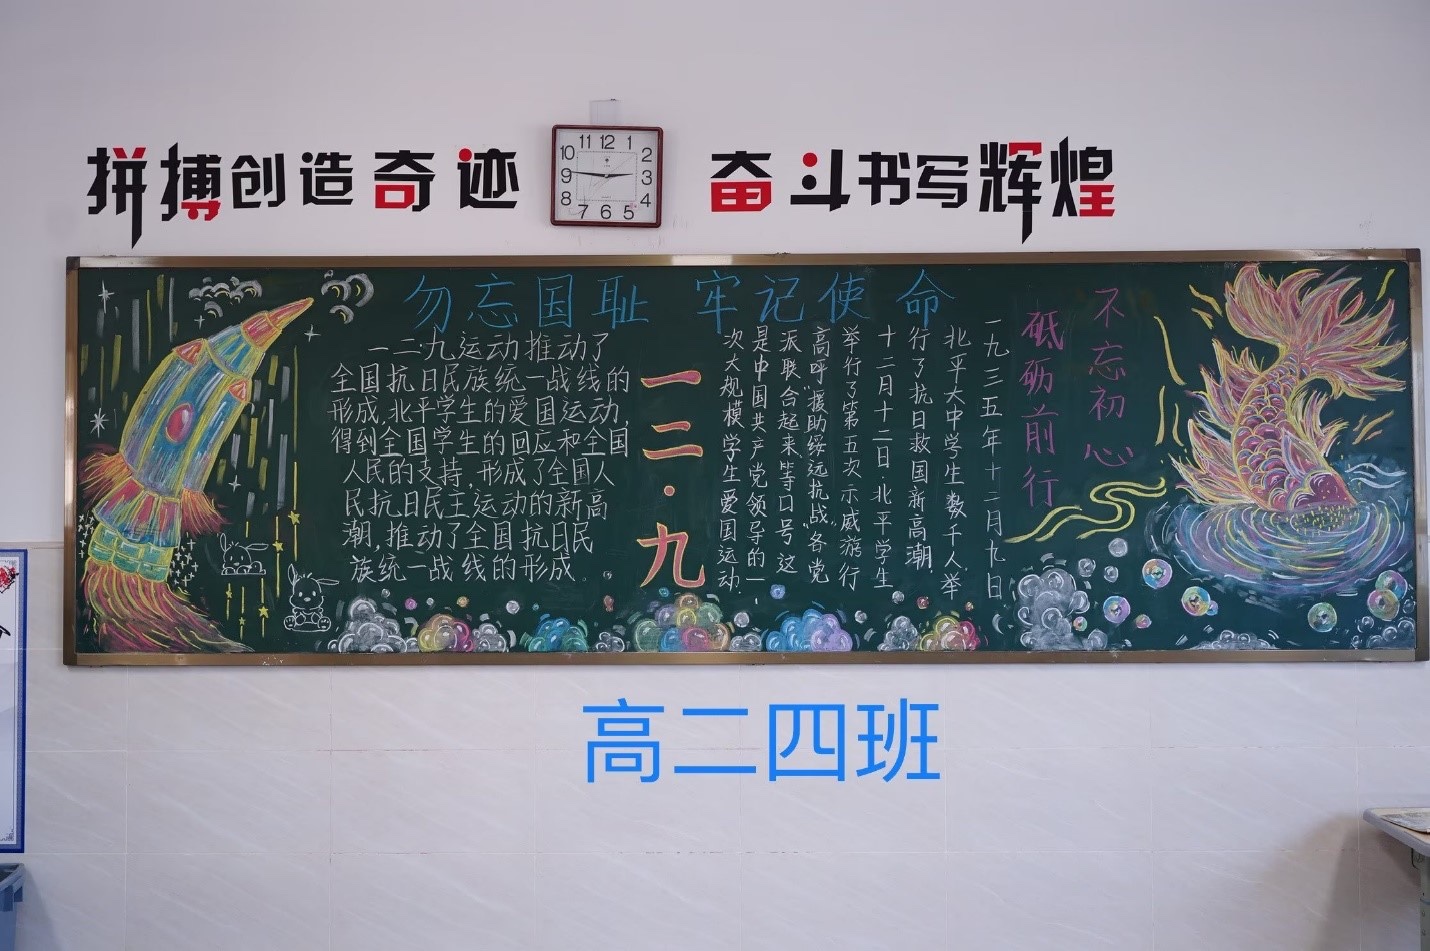 拼搏创造奇迹
奋斗书写辉煌
11 12 1
10 2
9 3
8 4
7 6 5
勿忘国耻 牢记使命
一二·九运动推动了
全国抗日民族统一战线的
形成,北平学生的爱国运动,
得到全国学生的回应和全国
人民的支持,形成了全国人
民抗日民主运动的新高
潮,推动了全国抗日民
族统一战线的形成。
一二·九
一九三五年十二月九日
北平大中学生数千人,举
行了抗日救国新高潮
十二月十二日·北平学生
举行了第五次示威游行
高呼“援助绥远抗战”各党
派联合起来”等口号这
是中国共产党领导的一
次大规模学生爱国运动.
不忘初心
砥砺前行
高二四班